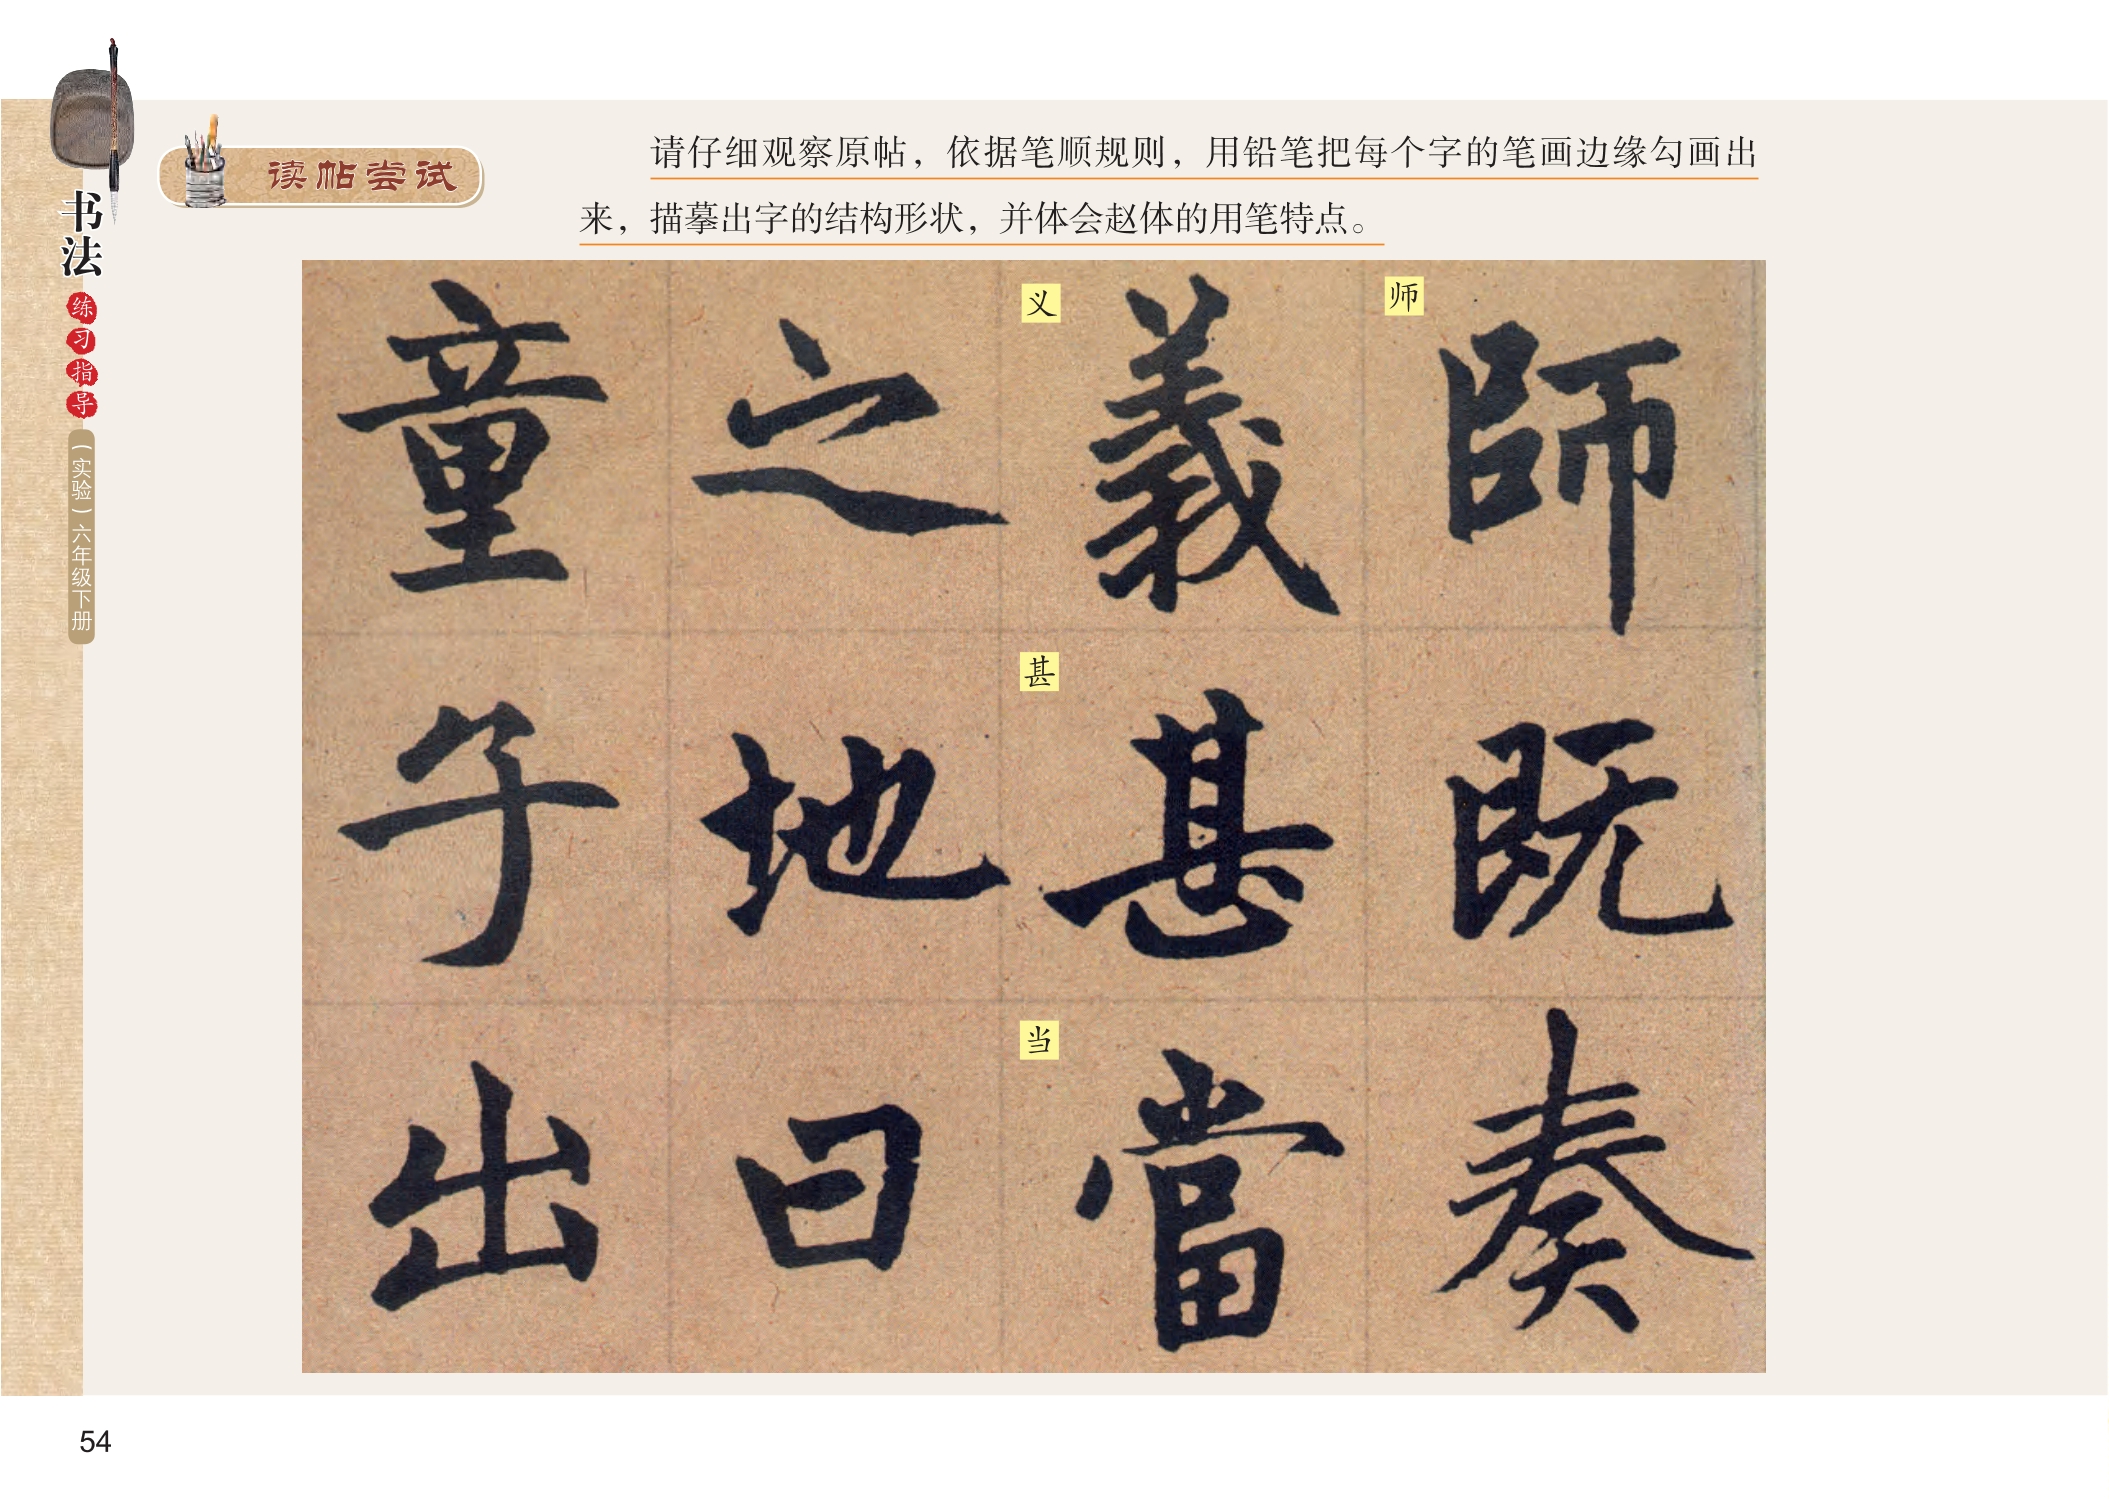 书法
练习指导
（实验）六年级下册
读帖尝试
请仔细观察原帖，依据笔顺规则，用铅笔把每个字的笔画边缘勾画出
来，描摹出字的结构形状，并体会赵体的用笔特点。
师
師既奏
义
甚
当
義甚當
之地曰
童子出
54